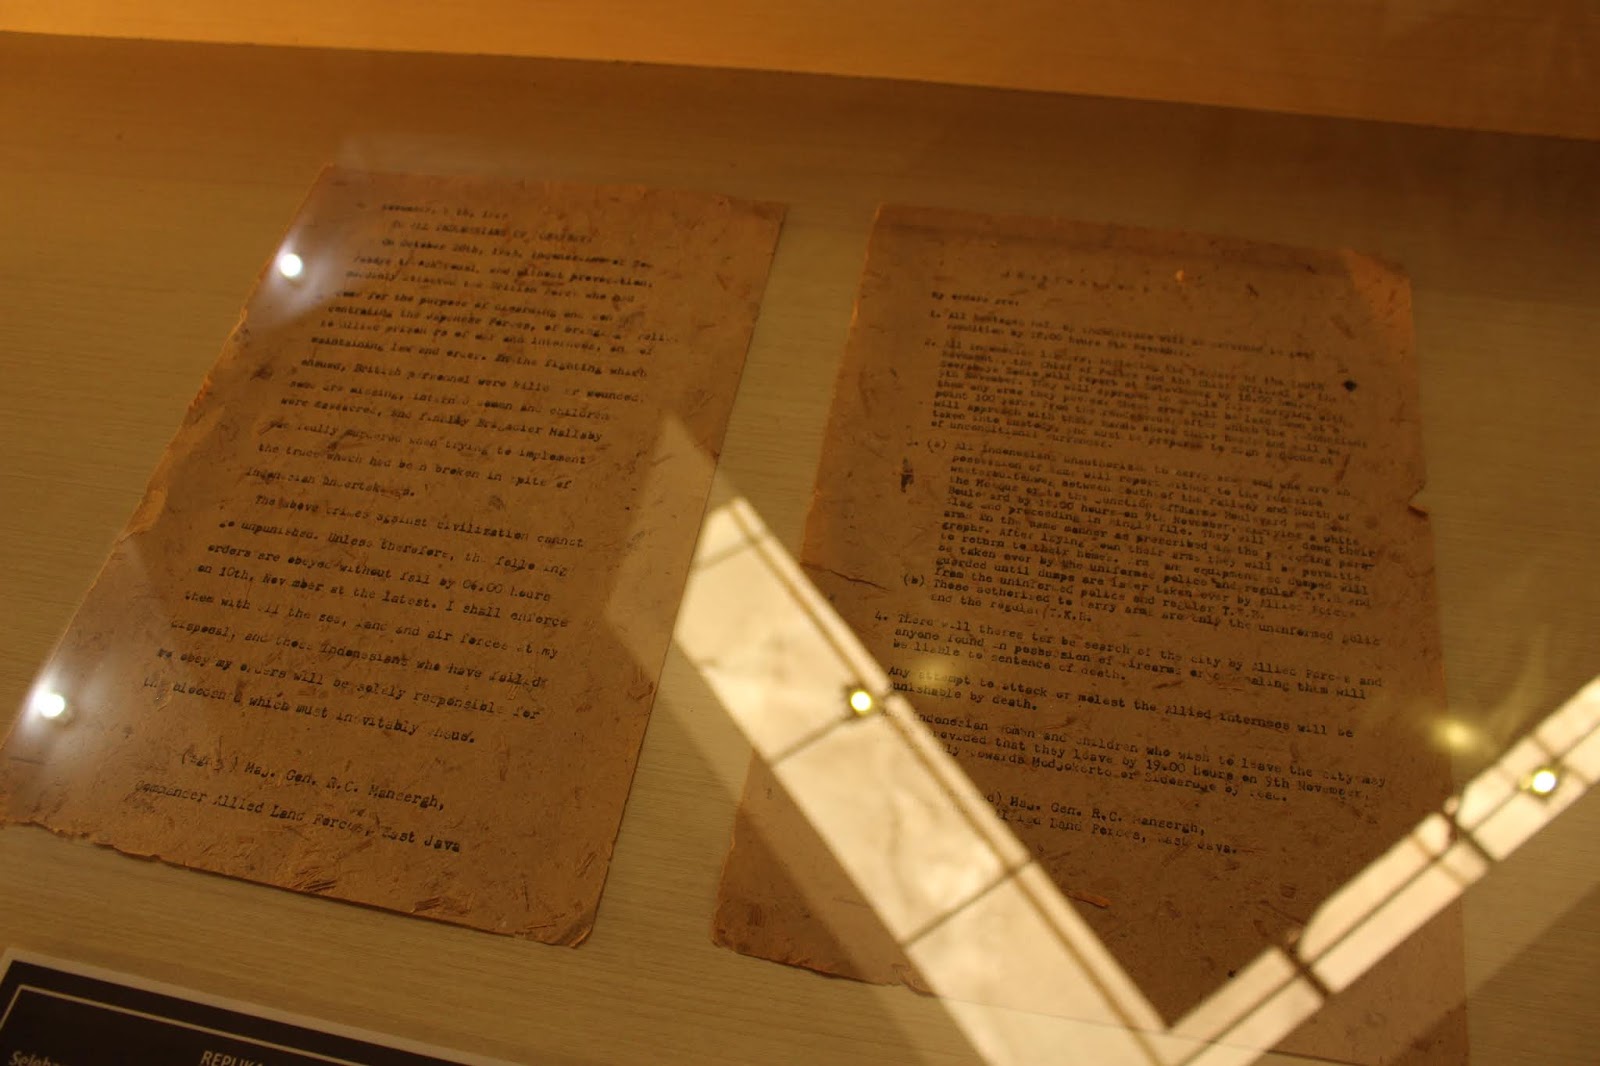 November, 9 th, 19
TO ALL INDONESIANS OF
On October 28th, 1945, Indonesians of
and without provocation,
suddenly attacked the British Force who had
for the purpose of disarming and
centrating the Japanese Forces, of
to Allied prisoners of war and internees, of
maintaining law and order. In the fighting which
ensued, British personnel were killed or wounded,
some are missing, interned women and children
were massacred, and finally Brigadier Mallaby
was foully murdered when trying to implement
the truce which had been broken in spite of
Indonesian undertakings.
The above crimes against civilization cannot
go unpunished. Unless therefore, the following
orders are obeyed without fail by 06.00 hours
on 10th, November at the latest. I shall enforce
them with all the sea, land and air forces at my
disposal, and those Indonesians who have failed
to obey my orders will be solely responsible for
the bloodshed which must inevitably
Maj. Gen. R.C. Mansergh,
Commander Allied Land Forces, East Java
My orders are:
1. All hostages held by Indonesians will be returned in good
condition by 18.00 hours 9th November.
2. All Indonesian leaders, including the leaders of the Youth
Movement, the Chief of Police and the Chief Official of the
Soerabaya Radio will report at by 18.00 hours,
9th November. They will approach in single file carrying with
them any arms they possess. These arms will be laid down at a
point 100 yards from the rendezvous, after which the Indonesians
will approach with their hands above their heads and will be
taken into custody, and must be prepared to sign a
of unconditional surrender.
(a) All Indonesians unauthorised to carry arms and who are in
possession of same will report either to the roadside
between South of the railway and North of
the Mosque or to the junction of Boulevard and
Boulevard by 18.00 hours on 9th November, carrying a white
flag and proceeding in single file. They will lay down their
arms in the same manner as prescribed in the preceding para-
graph. After laying down their arms they will be permitted
to return to their homes. Arms and equipment so dumped will
be taken over by the uniformed police and regular T.K.R and
guarded until dumps are later taken over by Allied Forces
from the uniformed police and regular T.K.R.
(b) Those authorised to carry arms are only the uninformed police
and the regular T.K.R.
4. There will be search of the city by Allied Forces and
anyone found in possession of firearms or concealing them will
be liable to sentence of death.
Any attempt to attack or molest the Allied internees will be
punishable by death.
Indonesian women and children who wish to leave the city may
provided that they leave by 19.00 hours on 9th November,
towards Modjokerto or Sidoardjo by road.
Maj. Gen. R.C. Mansergh,
Allied Land Forces, East Java.